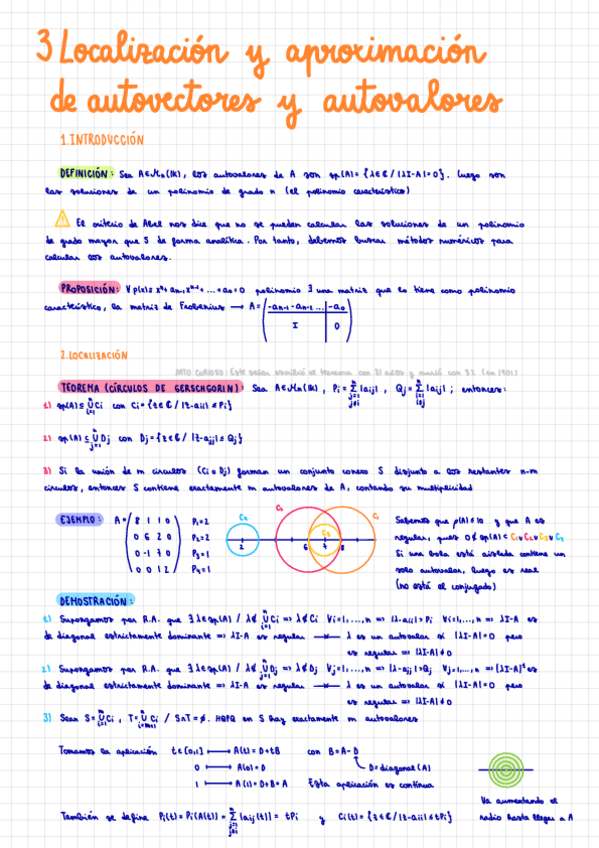 3 Localización y aproximación
de autovectores y autovalores
1. INTRODUCCIÓN
DEFINICIÓN: Sea A∈Mn(IK), los autovalores de A son sp(A)={λ∈ℂ/|λI-A|=0}. Luego son
las soluciones de un polinomio de grado n (el polinomio característico)
! El criterio de Abel nos dice que no se pueden calcular las soluciones de un polinomio
de grado mayor que 5 de forma analítica. Por tanto, debemos buscar métodos numéricos para
calcular los autovalores.
PROPOSICIÓN: ∀p(x)=xⁿ+an-1xⁿ⁻¹+...+a0=0 polinomio ∃ una matriz que lo tiene como polinomio
característico, la matriz de Frobenius → A=(-an-1 -an-2 ... | -a0
I | 0)
2. LOCALIZACIÓN
DATO CURIOSO: Este señor escribió el teorema con 31 años y murió con 32 (en 1901)
TEOREMA (CÍRCULOS DE GERSCHGORIN): Sea A∈Mn(IK), Pi=∑|aij|, Qj=∑|aij|; entonces:
1) sp(A)⊆∪Ci con Ci={z∈ℂ/|z-aii|≤Pi}
2) sp(A)⊆∪Dj con Dj={z∈ℂ/|z-ajj|≤Qj}
3) Si la unión de m círculos (Ci o Dj) forman un conjunto conexo S disjunto a los restantes n-m
círculos, entonces S contiene exactamente m autovalores de A, contando su multiplicidad
EJEMPLO: A=(8 1 1 0 P1=2
0 6 2 0 P2=2
0 -1 7 0 P3=1
0 0 1 2) P4=1
C4 C2 C3 C1
2 6 7 8
Sabemos que ρ(A)≤10 y que A es
regular, pues 0∉sp(A)⊂C1∪C2∪C3∪C4
Si una bola está aislada contiene un
solo autovalor, luego es real
(no está el conjugado)
DEMOSTRACIÓN:
1) Supongamos por R.A. que ∃λ∈sp(A) / λ∉∪Ci ⇒ λ∉Ci ∀i=1,...,n ⇒ |λ-aii|>Pi ∀i=1,...,n ⇒ λI-A es
de diagonal estrictamente dominante ⇒ λI-A es regular λ es un autovalor si |λI-A|=0 pero
es regular ⇒ |λI-A|≠0
2) Supongamos por R.A. que ∃λ∈sp(A) / λ∉∪Dj ⇒ λ∉Dj ∀j=1,...,n ⇒ |λ-ajj|>Qj ∀j=1,...,n ⇒ (λI-A)ᵗ es
de diagonal estrictamente dominante ⇒ λI-A es regular λ es un autovalor si |λI-A|=0 pero
es regular ⇒ |λI-A|≠0
3) Sean S=∪Ci, T=∪Ci / S∩T=∅. HQPQ en S hay exactamente m autovalores
Tomamos la aplicación t∈[0,1] ⟼ A(t)=D+tB con B=A-D
0 ⟼ A(0)=D D=diagonal(A)
1 ⟼ A(1)=D+B=A Esta aplicación es continua
Va aumentando el
radio hasta llegar a A
También se define Pi(t)=Pi(A(t))=∑|aij(t)|=tPi y Ci(t)={z∈ℂ/|z-aii|≤tPi}